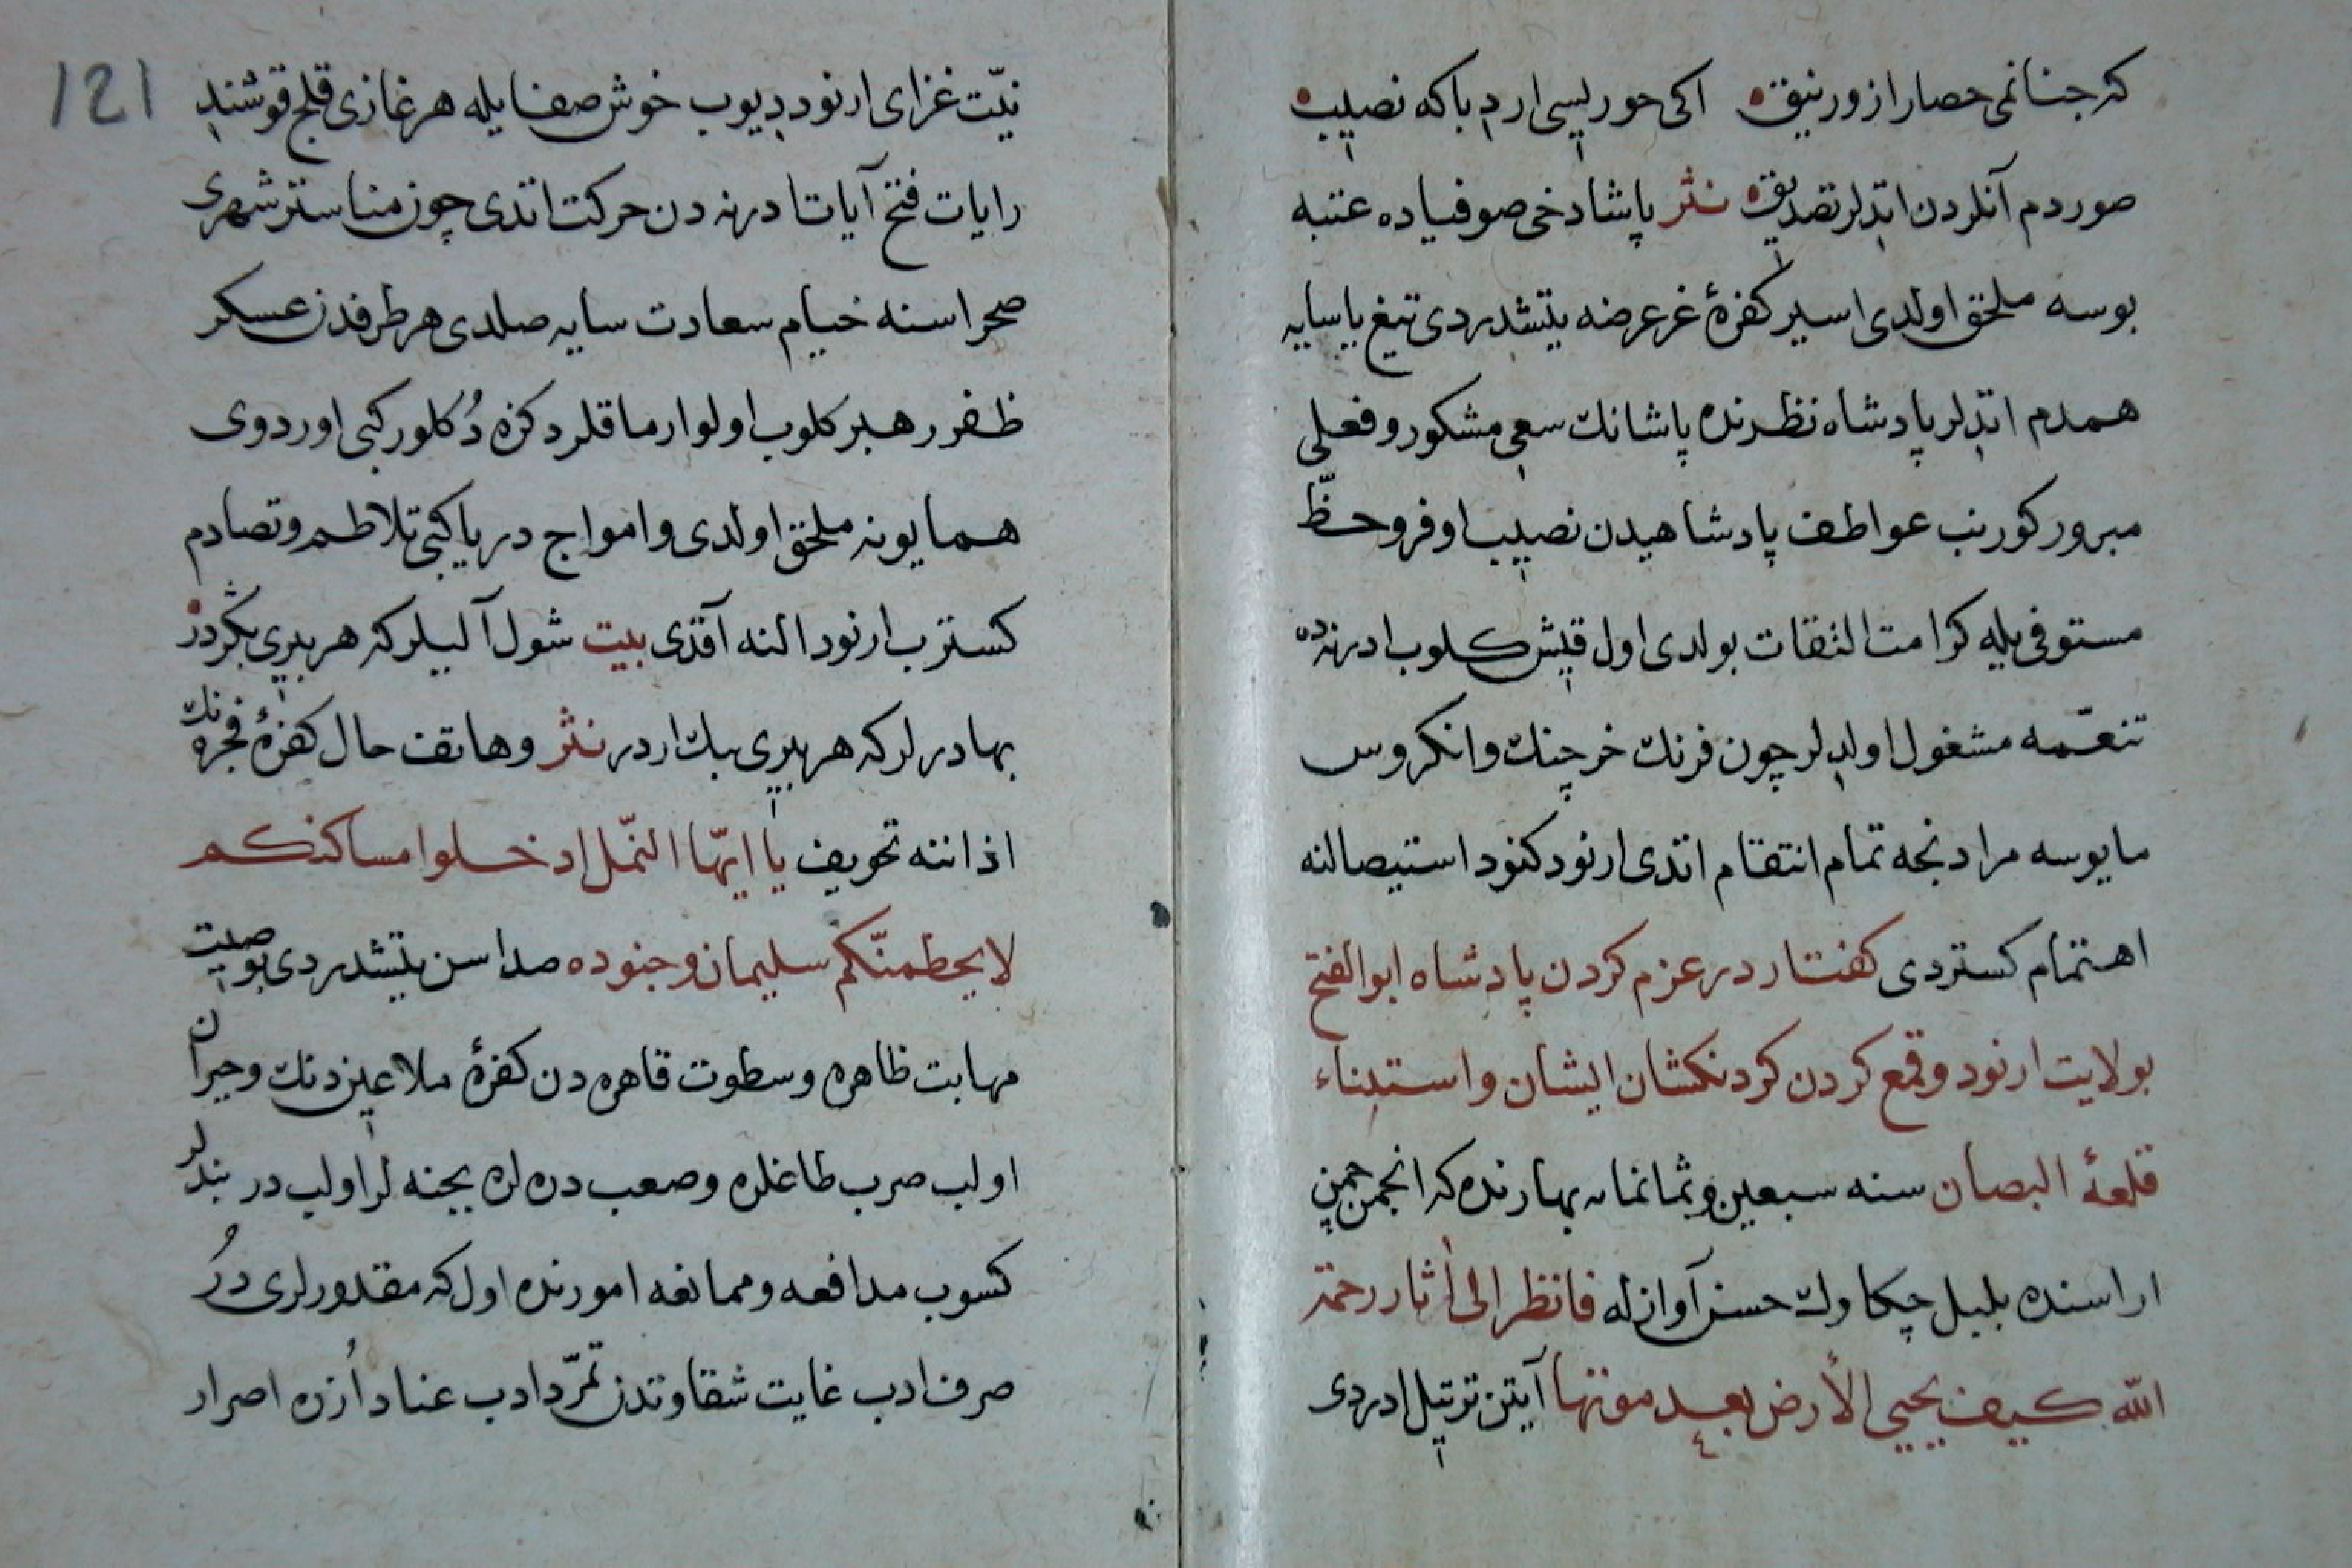 که جنانمی حصار ازور نیقه اکی حور لیسی ارد باکه نصیب
صوردم آنلردن اتدلر تصدیقه نثر پاشا دخی صوفیاده عتبه
بوسه ملحق اولدی اسیر کفرهٔ غرعرضه یتشدردی تیغ یاسایه
همدم اتدلر پادشاه نظرنده پاشانك سعی مشکور و فعلی
مبرور کورنب عواطف پادشاهیدن نصیب اوفر و حظّ
مستوفی یله کرامت التفات بولدی اول قیش کلوب ادرنه ده
تنعّمه مشغول اولدلر چون فرنك خرچنك وانکروس
مایوسه مرادنجه تمام انتقام اتدی ارنود کنود استیصالنه
اهتمام کستردی کفتار در عزم کردن پادشاه ابو الفتح
بولایت ارنود وقمع کردن کردنکشان ایشان و استبناء
قلعهٔ البصان سنه سبعین وثمانمایه بهارنده که انجمن چمن
اراسنده بلبل چکاوك حسن آوازله فانظر الی أثار رحمة
اللّه کیف یحیی الأرض بعد موتها آیتن ترتیل ادردی
121
نیّت غزای ارنود دیوب خوش صفایله هر غازی قلج قوشندی
رایات فتح آیات ادرنه دن حرکت اتدی چون مناستر شهری
صحراسنه خیام سعادت سایه صلدی هر طرفدن عسکر
ظفر رهبر کلوب اولو ارماقلر دکزه دُکلور کبی اوردوی
همایونه ملحق اولدی و امواج دریا کبی تلاطم و تصادم
کسترب ارنود النه آقدی بیت شول آلیلر که هر بیری بکردر
بهادرلر که هر بیری بیك ار در نثر وهاتف حال کفرهٔ فجره نك
اذاننه تخویف یا ایّها النّمل ادخلوا مساکنکم
لا یحطمنّکم سلیمان وجنوده صداسن یتشدردی بو صیت
مهابت ظاهره و سطوت قاهره دن کفرهٔ ملاعین دنك وحیران
اولب صرب طاغلره وصعب دره لره یجنه لر اولب دربندلر
کسوب مدافعه و ممانعه امورنده اول که مقدورلری در
صرف ادب غایت شقاوتدن تمرّد ادب عناد اُزره اصرار